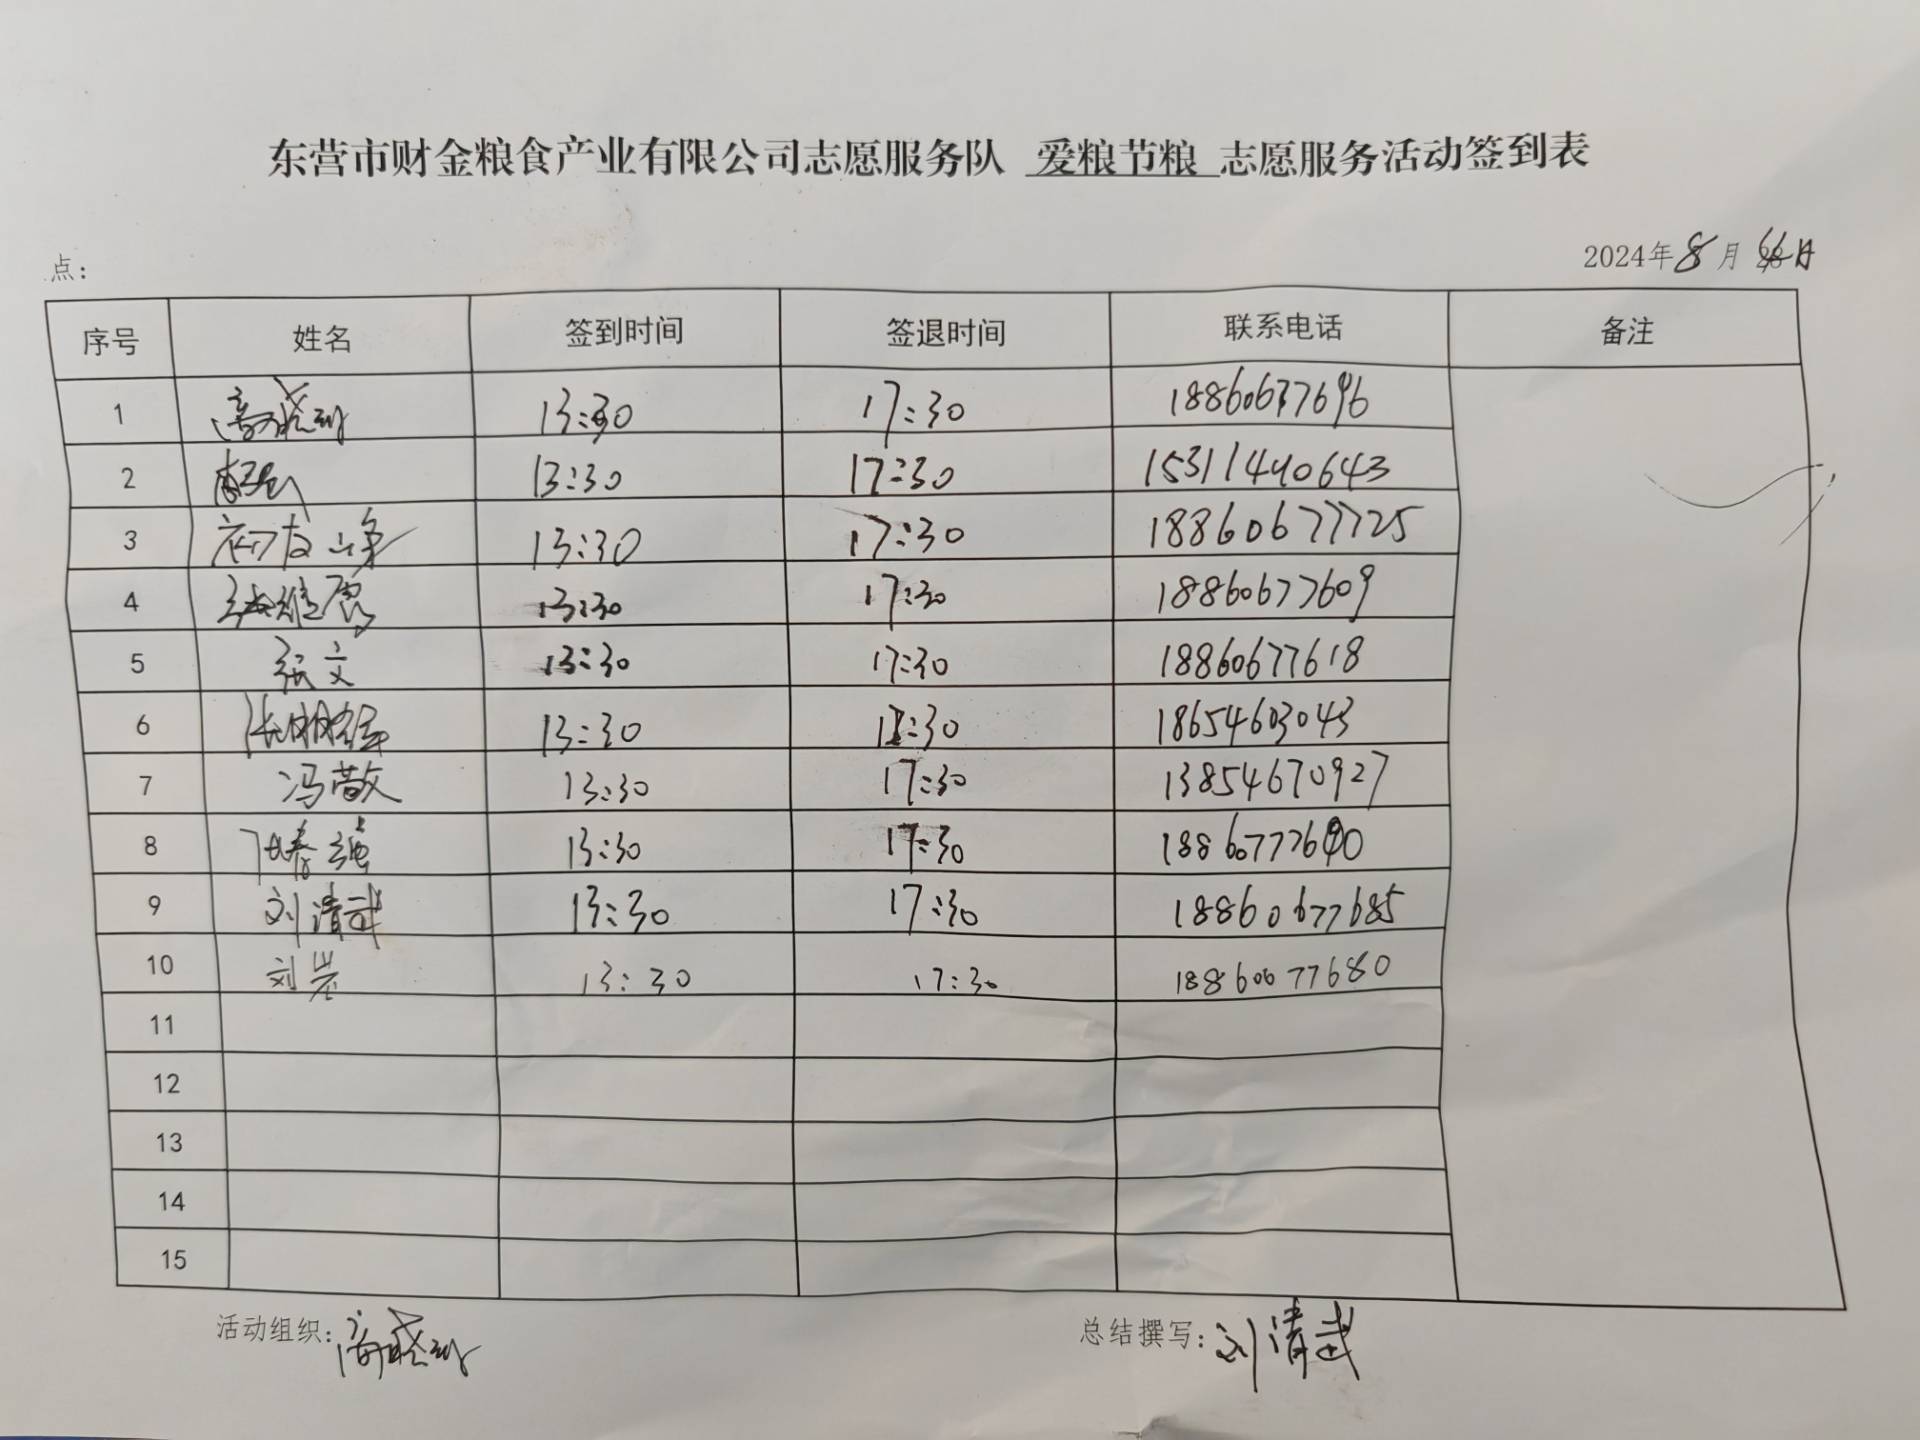 东营市财金粮食产业有限公司志愿服务队 爱粮节粮 志愿服务活动签到表
点： 2024年8月 日
序号 姓名 签到时间 签退时间 联系电话 备注
1 13:30 17:30 18860677696
2 13:30 17:30 15311440643
3 13:30 17:30 18860677725
4 13:30 17:30 18860677609
5 张文 13:30 17:30 18860677618
6 13:30 17:30 18654603043
7 冯敬 13:30 17:30 13854670927
8 13:30 17:30
9 刘清武 13:30 17:30 18860677685
10 刘岩 13:30 17:30 18860677680
11
12
13
14
15
活动组织： 总结撰写：刘清武